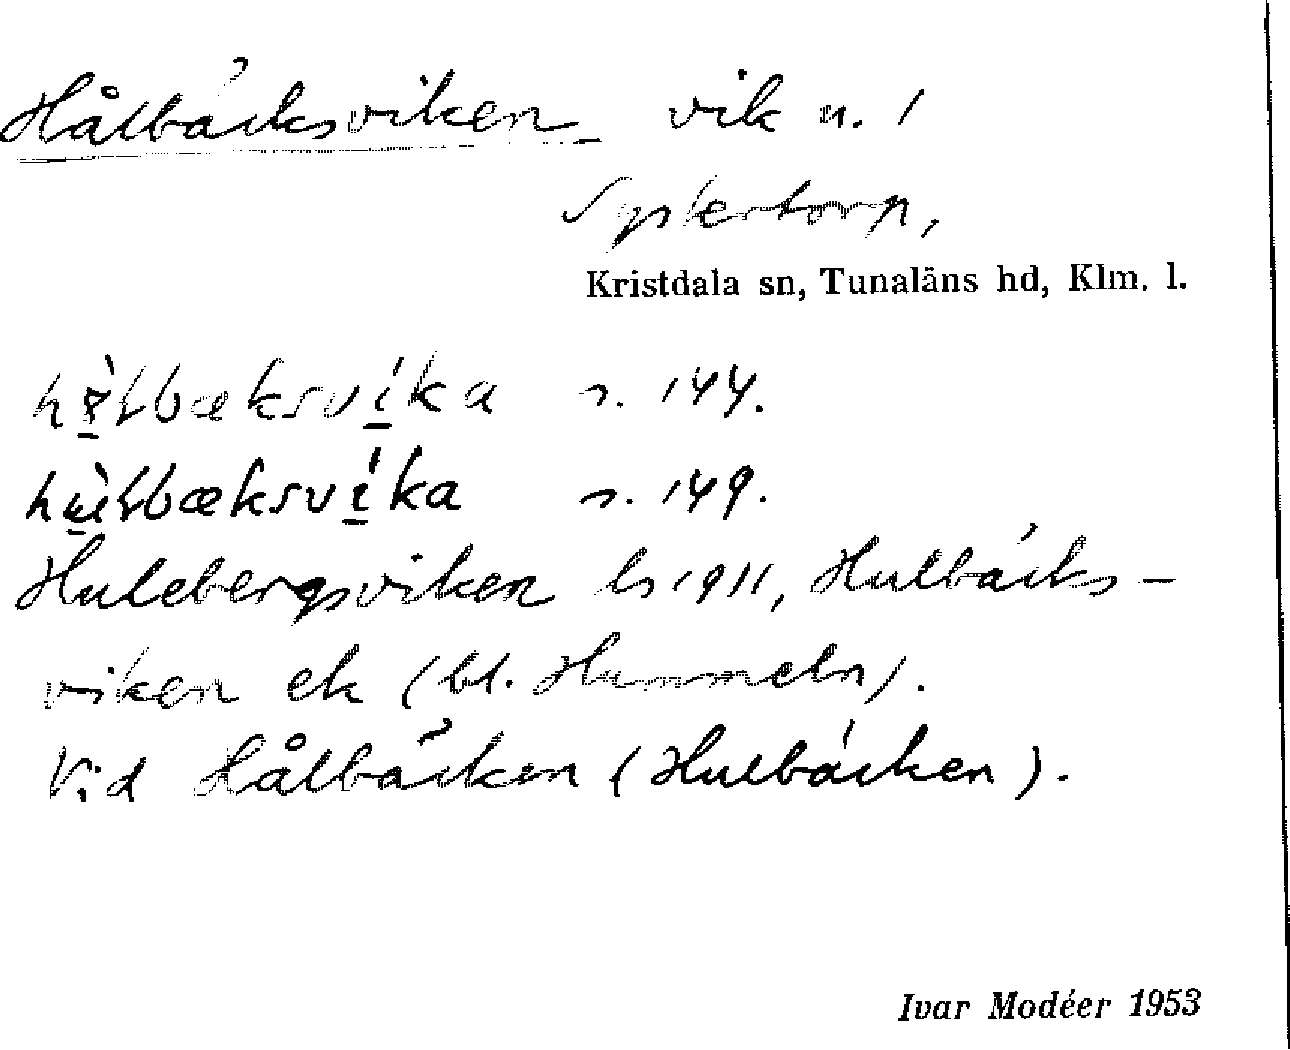 Hålbäcksviken vik u. /
Systertorp,
Kristdala sn, Tunaläns hd, Klm. l.
s. 144.
s. 149.
Hulebergsviken ls 1911, Hulbäcks-
viken ek (bl. Hummeln).
Vid Hålbäcken (Hulbäcken).
Ivar Modéer 1953